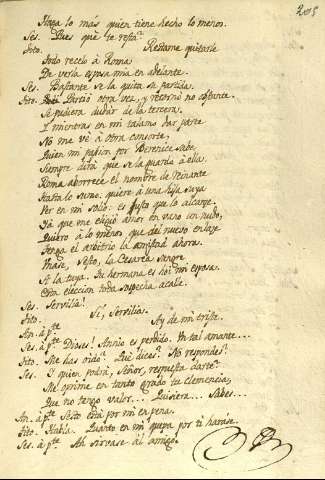 203
Haga lo mas quien tiene hecho lo menor.
Ses. Pues qué te resta?
Tito. Restame quitarle
Todo recelo à Roma
De verla esposa mia en adelante.
Ses. Bastante se la quita su partida.
Tito. Partió otra vez, y retornó no obstante.
Se pudiera dudar de la tercera.
I mientras en mi talamo dar parte
No me vé à otra consorte,
Quien mi pasion por Berenice sabe,
Siempre dirá que se la guarda à ella.
Roma aborrece el nombre de Reinante
Hasta lo sumo: quiere à una hija suya
Ver en mi solio: es justo que lo alcanze.
Yá que me eligió Amor en vano un nudo,
Quiero à lo menos que del nuevo enlaze
Tenga el arbitrio la amistad ahora.
Unase, Sesto, la Cesarea sangre
A la tuya. Tu hermana es hoi mi esposa.
Esta eleccion toda sospecha acalle.
Ses. Servilia!
Tito. Sí, Servilia.
An. à pte. Ay de mi triste.
Ses. à pte. Dioses! Annio es perdido. Un tal amante...
Tito. Me has oido? Qué dices? No respondes?
Ses. I quien podrá, Señor, respuesta darte?
Me oprime en tanto grado tu clemencia,
Que no tengo valor... Quisiera... Sabes...
An. à pte. Sesto está por mi en pena.
Tito. Habla. Quanto en mi quepa por ti haráse.
Ses. à pte. Ah sirvase al amigo.